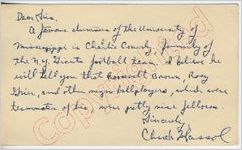 Dear Sir.
A famous alumnus of the University of
Mississippi is Charlie Conerly, formerly of
the N.Y. Giants football team. I believe he
will tell you that Roosevelt Brown, Rosy
Grier, and other negro ballplayers, which were
teammates of his, were pretty nice fellows.
Sincerely
Chuck